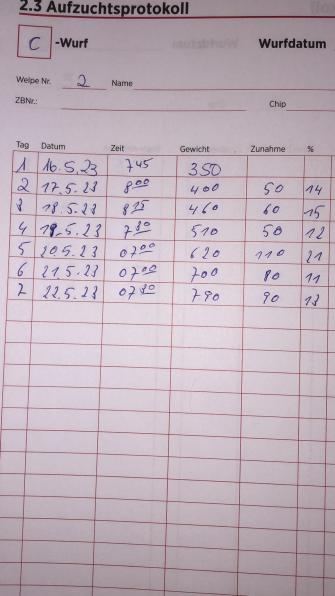 2.3 Aufzuchtsprotokoll
C -Wurf Wurfdatum
Welpe Nr. 2 Name
ZBNr.: Chip
Tag Datum Zeit Gewicht Zunahme %
1 16.5.23 7 45 350
2 17.5.23 8 00 400 50 14
3 18.5.23 8 25 460 60 15
4 19.5.23 7 30 510 50 12
5 20.5.23 07 00 620 110 21
6 21.5.23 07 00 700 80 11
7 22.5.23 07 30 790 90 13